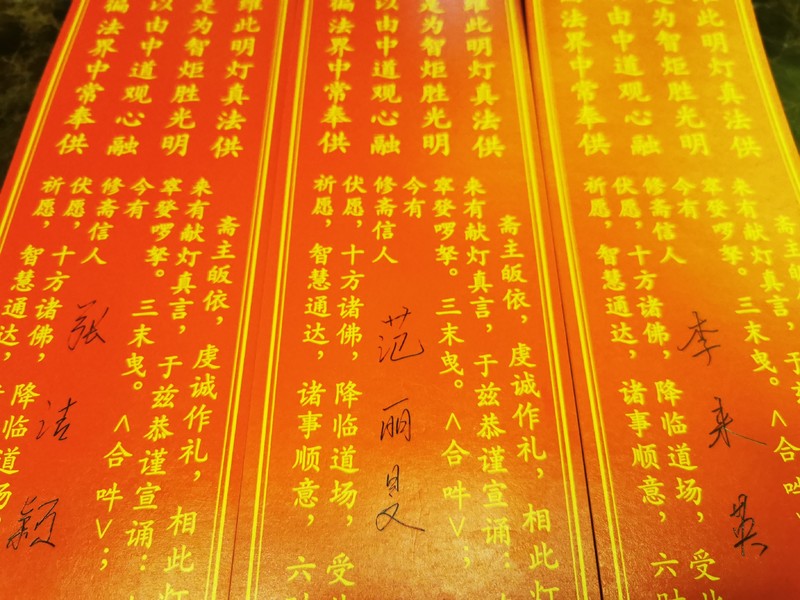 维此明灯真法供
是为智炬胜光明
以由中道观心融
遍法界中常奉供
斋主皈依，虔诚作礼，相此灯
来有献灯真言，于兹恭谨宣诵：
窣癹啰拏。三末曳。<合吽>；
今有
修斋信人 张洁颖
伏愿，十方诸佛，降临道场，
祈愿，智慧通达，
维此明灯真法供
是为智炬胜光明
以由中道观心融
遍法界中常奉供
斋主皈依，虔诚作礼，相此灯
来有献灯真言，于兹恭谨宣诵：
窣癹啰拏。三末曳。<合吽>；
今有
修斋信人 范丽旻
伏愿，十方诸佛，降临道场，受此
祈愿，智慧通达，诸事顺意，六时
维此明灯真法供
是为智炬胜光明
由中道观心融
法界中常奉供
斋主皈依，
来有献灯真言，于
窣癹啰拏。三末曳。<合吽
今有
修斋信人 李来英
伏愿，十方诸佛，降临道场，受此
祈愿，智慧通达，诸事顺意，六时